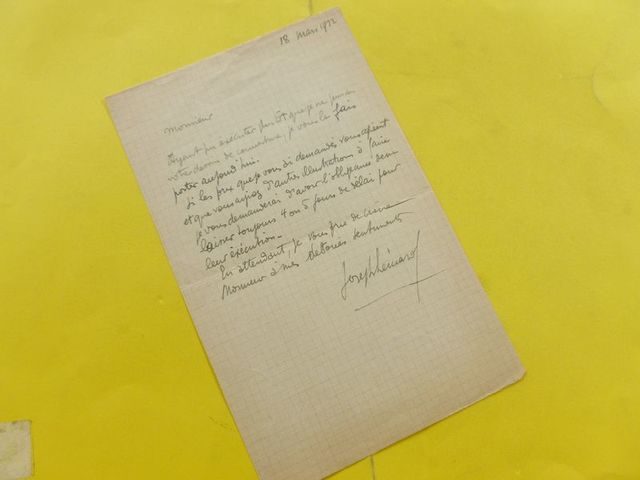 18 mars 1922
Monsieur
Ayant pu exécuter plus tôt que je ne pensais
votre dessin de couverture, je vous le fais
porter aujourd'hui.
Si les prix que je vous ai demandés vous agréent
et que vous ayez d'autres illustrations à faire
je vous demanderai d'avoir l'obligeance de me
laisser toujours 4 ou 5 jours de délai pour
leur exécution.
En attendant, je vous prie de croire
Monsieur à mes dévoués sentiments
Joseph Hémard